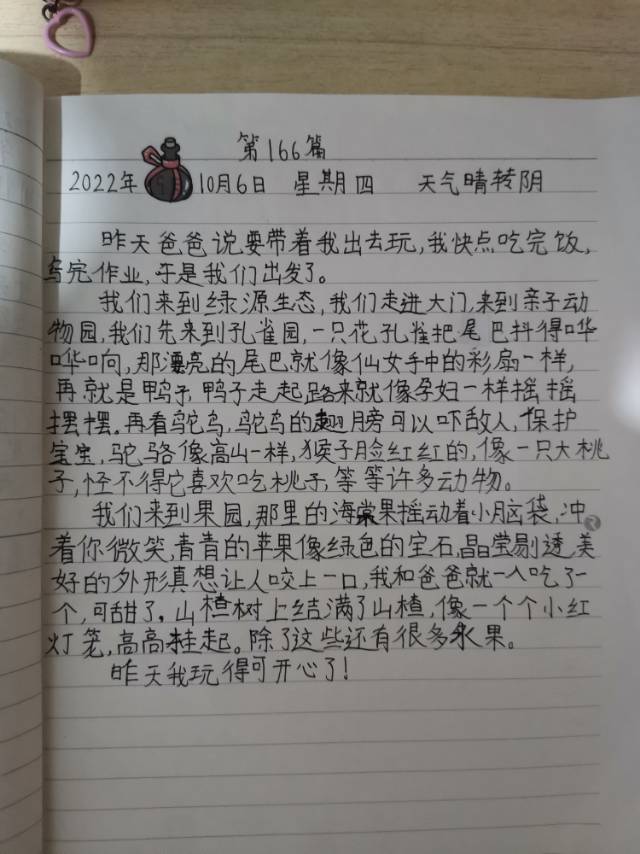 第166篇
2022年 10月6日 星期四 天气晴转阴
昨天爸爸说要带着我出去玩,我快点吃完饭,
写完作业,于是我们出发了。
我们来到绿源生态,我们走进大门,来到亲子动
物园,我们先来到孔雀园,一只花孔雀把尾巴抖得哗
哗响,那漂亮的尾巴就像仙女手中的彩扇一样,
再就是鸭子,鸭子走起路来就像孕妇一样摇摇
摆摆。再看鸵鸟,鸵鸟的翅膀可以吓敌人,保护
宝宝,驼骆像高山一样,猴子脸红红的,像一只大桃
子,怪不得它喜欢吃桃子,等等许多动物。
我们来到果园,那里的海棠果摇动着小脑袋,冲
着你微笑,青青的苹果像绿色的宝石,晶莹剔透,美
好的外形真想让人咬上一口,我和爸爸就一人吃了一
个,可甜了。山楂树上结满了山楂,像一个个小红
灯笼,高高挂起。除了这些还有很多水果。
昨天我玩得可开心了!